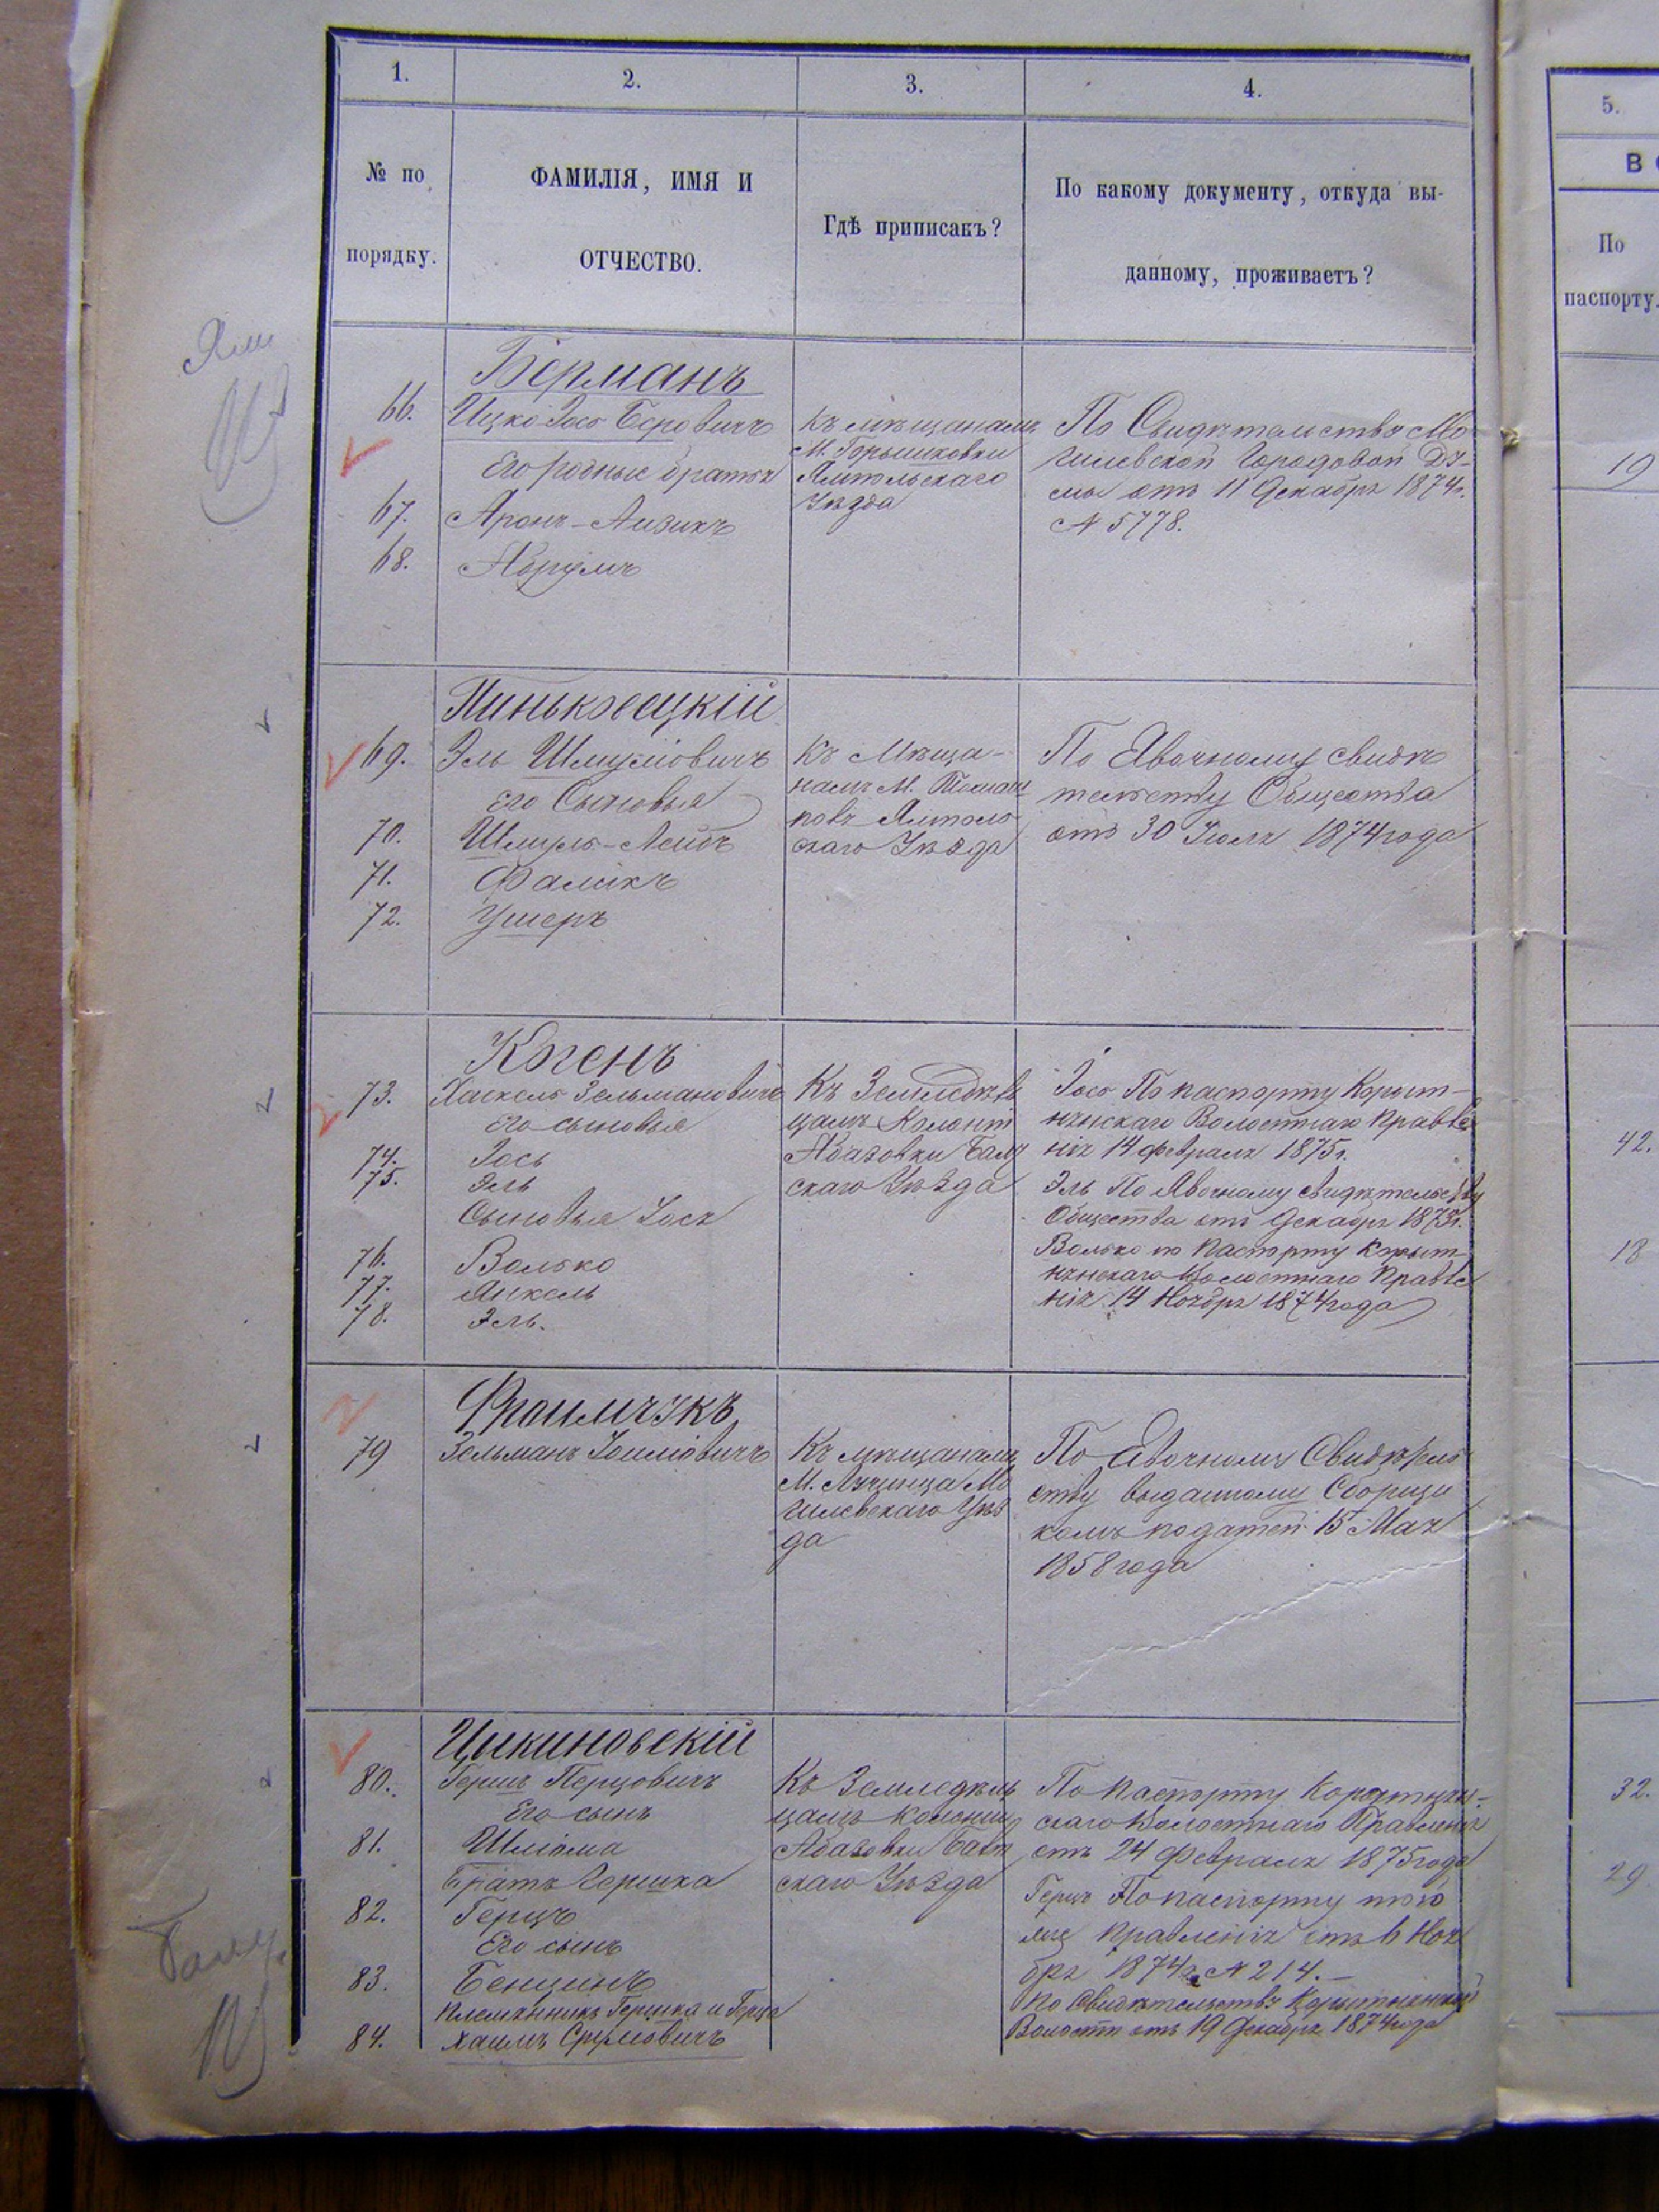 1.
2.
3.
4.
5.
№ по порядку.
ФАМИЛІЯ, ИМЯ И
ОТЧЕСТВО.
Гдѣ приписакъ?
По какому документу, откуда вы-
данному, проживаетъ?
По
паспорту.
Берманъ
66.
Ицко Іось Беровичъ
Его родные братья
67.
Аронъ-Аизикъ
68.
Абрумъ
Къ мѣщанамъ
М. Горышковки
Ямпольскаго
Уѣзда
По Свидѣтельству Мо
гилевской Городовой Ду-
мы отъ 11 Декабря 1874г.
№ 5778.
19
Пиньковецкій
69.
Эль Шмуліовичъ
Его Сыновья
70.
Шмуль-Лейбъ
71.
Фаликъ
72.
Ушеръ
Къ Мѣща-
намъ М.
повъ Ямполь
скаго Уѣзда
По Явочному свидѣ
тельству Общества
отъ 30 Іюля 1874 года
Когенъ
73.
Хаскель Зельмановичъ
Его сыновья
74.
Іось
75.
Эль
Сыновья Іося
76.
Волько
77.
Янкель
78.
Эль.
Къ Земледѣль
цамъ Колоніи
Абазовки Балт
скаго Уѣзда
Іось По паспорту Корыт-
нянскаго Волостнаго Правле
нія 14 февраля 1875г.
Эль По Явочному свидѣтельству
Общества отъ Декабря 1873г.
Волько по Паспорту Корыт-
нянскаго Волостнаго Правле
нія 14 Ноября 1874 года
42.
18
Фроимчукъ
79
Зельманъ Іоиліовичъ
Къ мѣщанамъ
М. Лучинца Мо
гилевскаго Уѣз
да
По Явочному Свидѣтель
ству выданному Сборщи
комъ податей 15 Мая
1858 года
Цикиновскій
80.
Гершъ Перцовичъ
Его сынъ
81.
Шліома
Братъ Гершка
82.
Герцъ
Его сынъ
83.
Бенціинъ
племянникъ Гершка и Герца
84.
Хаимъ Сруліовичъ
Къ Земледѣль
цамъ колоніи
Абазовки Балт
скаго Уѣзда
По паспорту Корытнян-
скаго Волостнаго Правленія
отъ 24 февраля 1875 года
Герцъ По паспорту того
же Правленія отъ 6 Ноя
бря 1874г. № 214.
По Свидѣтельству Корытнянской
Волости отъ 19 Декабря 1874 года
32.
29